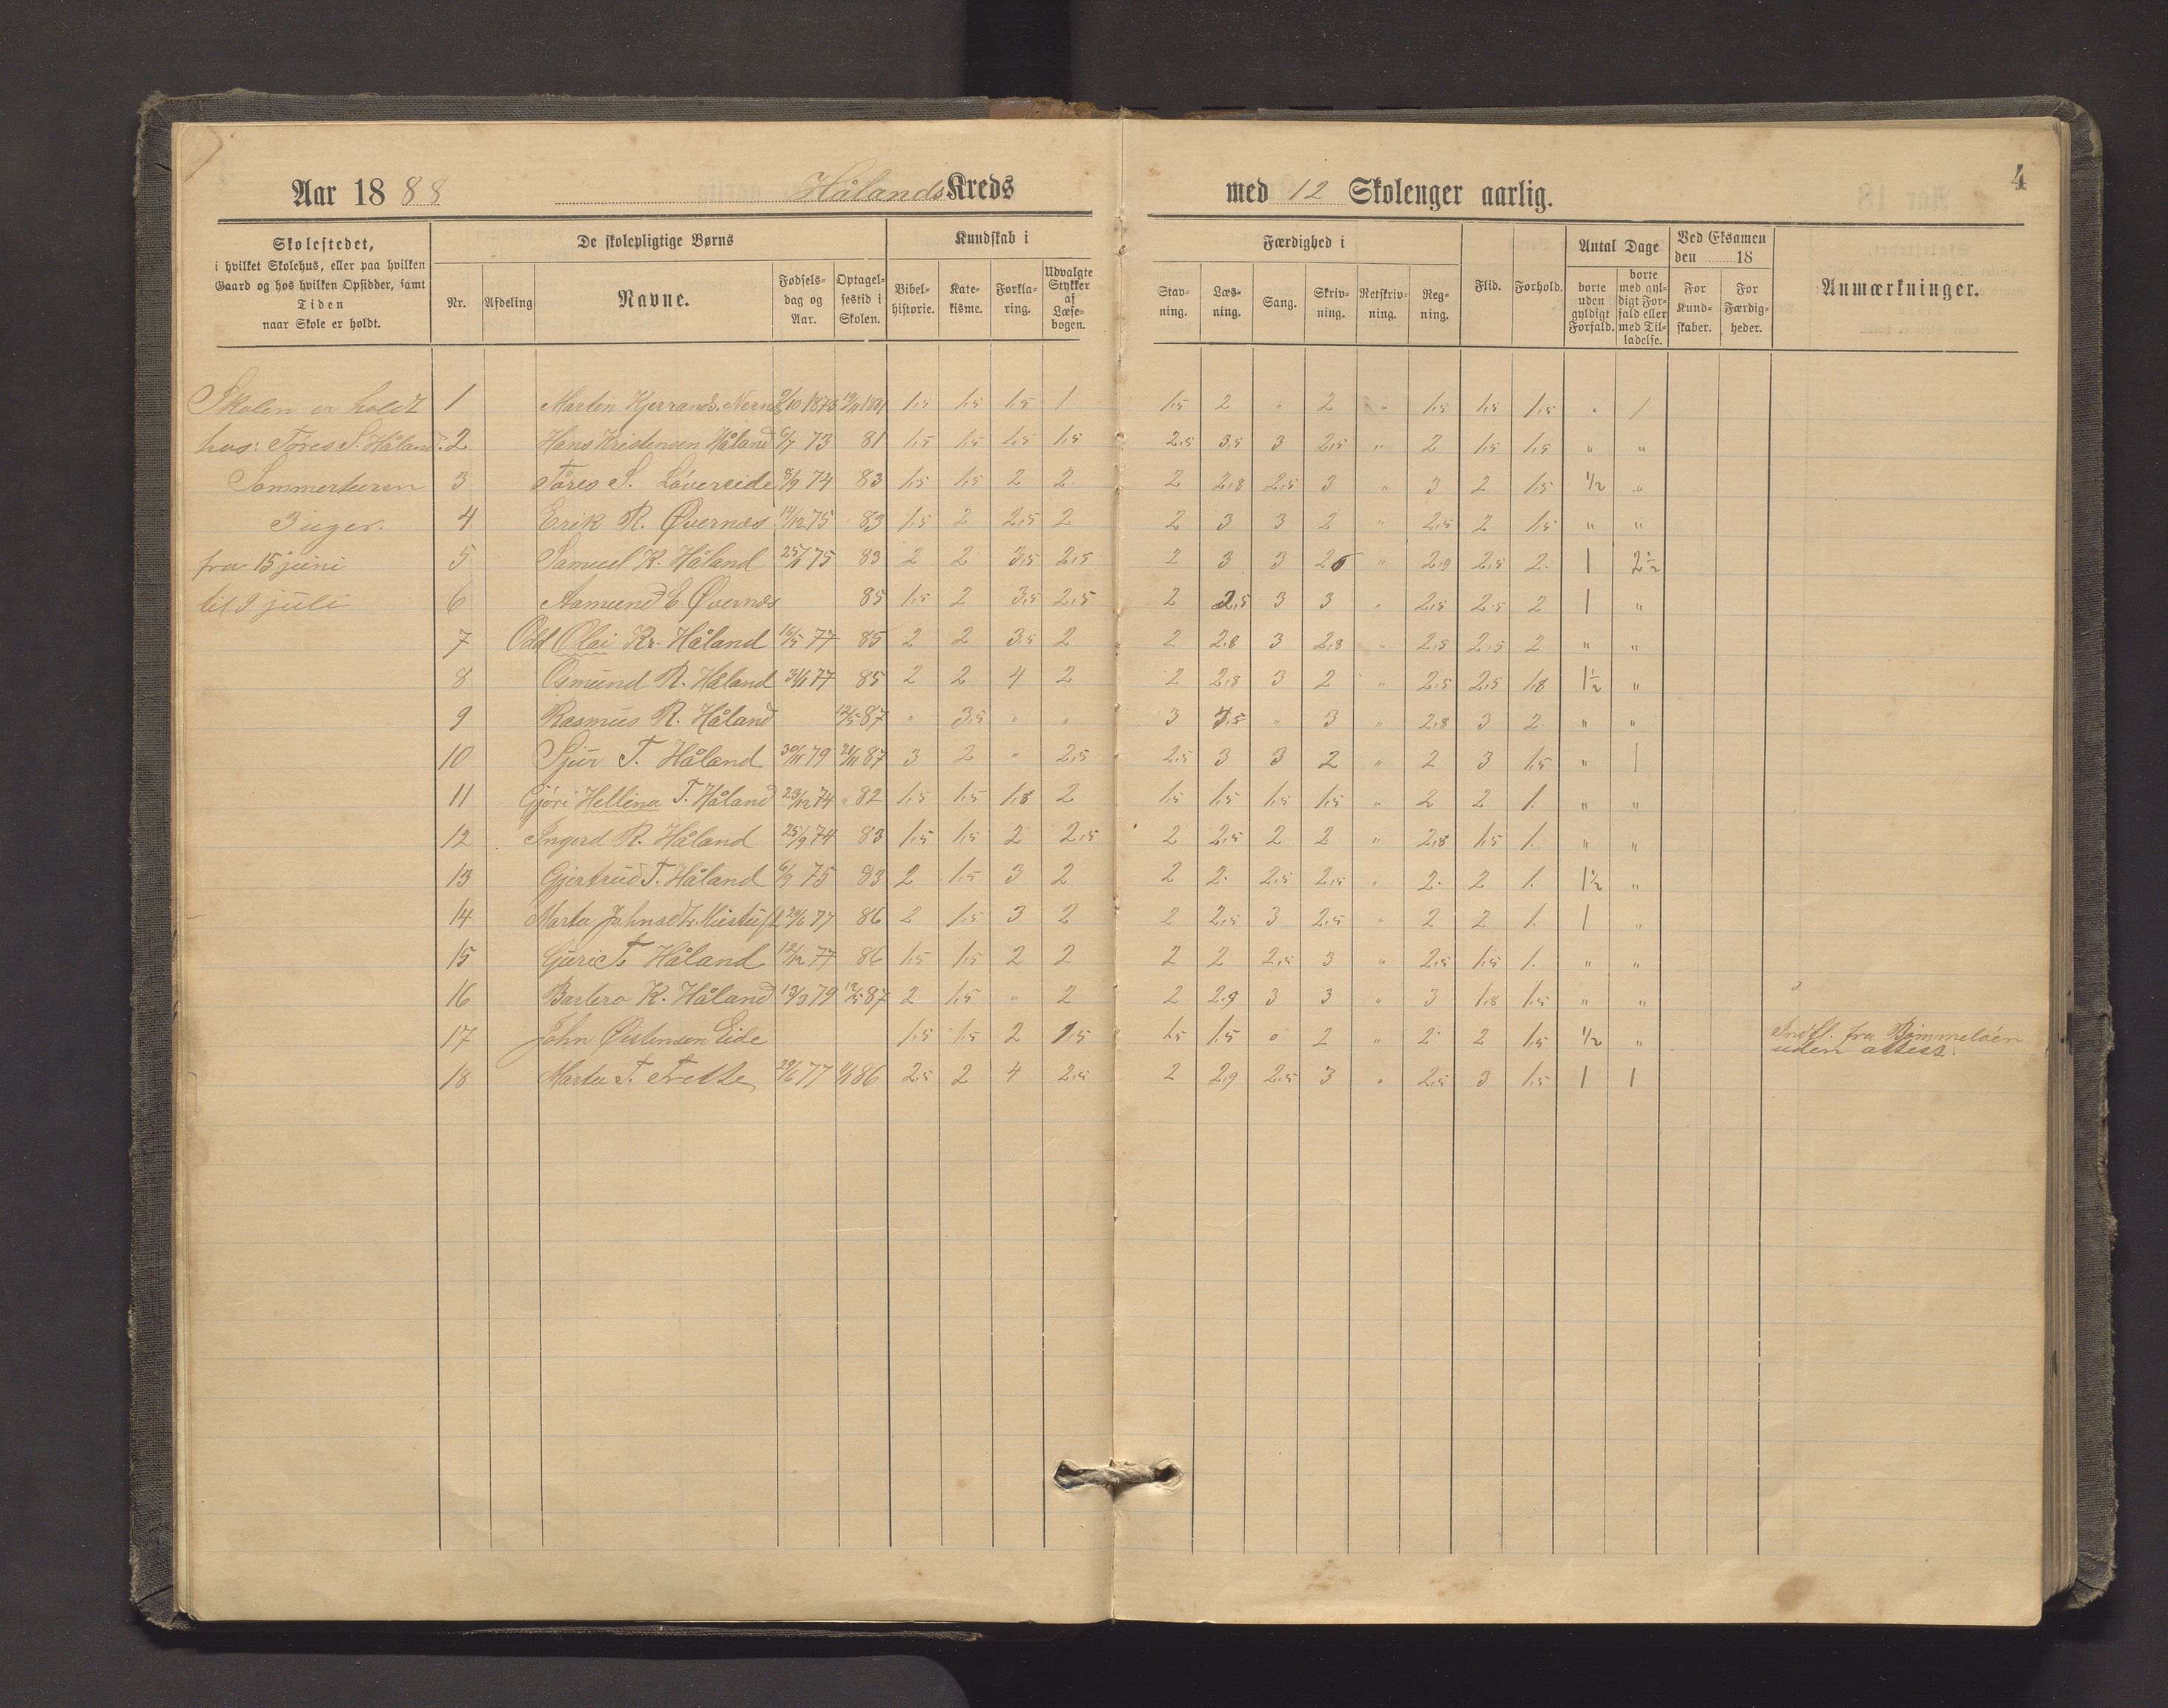 4
Aar 1888 Hålands Kreds med 12 Skolenger aarlig.
Skolestedet,
i hvilket Skolehus, eller paa hvilken
Gaard og hos hvilken Opsidder, samt
Tiden
naar Skole er holdt.
De skolepligtige Børns
Nr. Afdeling Navne. Fødsels-dag og Aar. Optagel-sestid i Skolen.
Kundskab i
Bibel-historie. Kate-kisme. Forkla-ring. Udvalgte Stykker af Læse-bogen.
Færdighed i
Stav-ning. Læs-ning. Sang. Skriv-ning. Retskriv-ning. Reg-ning.
Flid. Forhold.
Antal Dage
borte uden gyldigt Forfald. borte med gyl-digt For-fald eller med Til-ladelse.
Ved Eksamen den 18
For Kund-skaber. For Færdig-heder.
Anmærkninger.
Skolen er holdt
hos: Tøres S. Håland.
Sommerturen
3 uger.
fra 15 juni
til 9 juli
1 Martin Hjerrands. 1,5 1,5 1,5 1 1,5 2 " 2 " 1,5 1,5 1,5 " 1
2 Hans Kristensen Håland 6/7 73 81 1,5 1,5 1,5 1,5 2,5 3,5 3 2,5 " 2 1,5 1,5 " "
3 Tøres S. Løvereide 8/9 74 83 1,5 1,5 2 2 2 2,8 2,5 3 " 3 2 1,5 1/2 "
4 Erik R. Øvernæs 14/12 75 83 1,5 2 2,5 2 2 3 3 2 " 2,5 2 1,5 " "
5 Samuel K. Håland 75 83 2 2 3,5 2,5 2 3 3 " 2,9 2,5 2 1 2 1/2
6 Aamund E. Øvernæs 85 1,5 2 3,5 2,5 2 2,5 3 3 " 2,5 2,5 2 1 "
7 Odd Olai Kr. Håland 16/5 77 85 2 2 3,5 2 2 2,8 3 2,8 " 2,5 2,5 2 " "
8 Osmund R. Håland 77 85 2 2 4 2 2 2,8 3 2 " 2,5 2,5 1,8 1 1/2 "
9 Rasmus R. Håland 12/5 87 " 3,5 " " 3 3,5 " 3 " 2,8 3 2 " "
10 Sjur T. Håland 30/11 79 21/11 87 3 2 " 2,5 2,5 3 3 2 " 2 3 1,5 " 1
11 Gjøri Hellina T. Håland 23/12 74 " 82 1,5 1,5 1,8 2 1,5 1,5 1,5 1,5 " 2 2 1. " "
12 Ingerd R. Håland 25/9 74 83 1,5 1,5 2 2,5 2 2,5 2 2 " 2,8 1,5 1. " "
13 Gjertrud T. Håland 6/9 75 83 2 1,5 3 2 2 2 2,5 2,5 " 2 2 1. 1 1/2 "
14 Marta Johnsdtr. 77 86 2 1,5 3 2 2 2,5 3 2,5 " 2 2 1. 1 "
15 Guri T. Håland 12/12 77 86 1,5 1,5 2 2 2 2 2,5 3 " 2,5 1,5 1. " "
16 Barbro K. Håland 13/3 79 12/5 87 2 1,5 " 2 2 2,9 3 3 " 3 1,8 1,5 " "
17 John Østensen Eide 1,5 1,5 2 1,5 1,5 1,5 " 2 " 2 2 1,5 1/2 " Indfl. fra Bømmeløen
uden attest.
18 Marta T. Trette 29/6 77 86 2,5 2 4 2,5 2 2,9 2,5 3 " 2,5 3 1,5 1 1